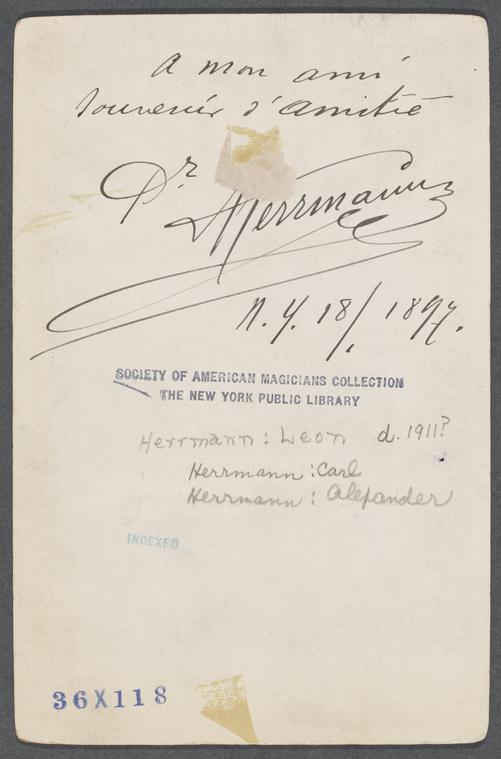 A mon ami
Souvenir d'amitié
Dr Herrmann
N. Y. 18/1. 1897.
SOCIETY OF AMERICAN MAGICIANS COLLECTION
THE NEW YORK PUBLIC LIBRARY
Herrmann: Leon d. 1911?
Herrmann: Carl
Herrmann: Alexander
INDEXED
36X118